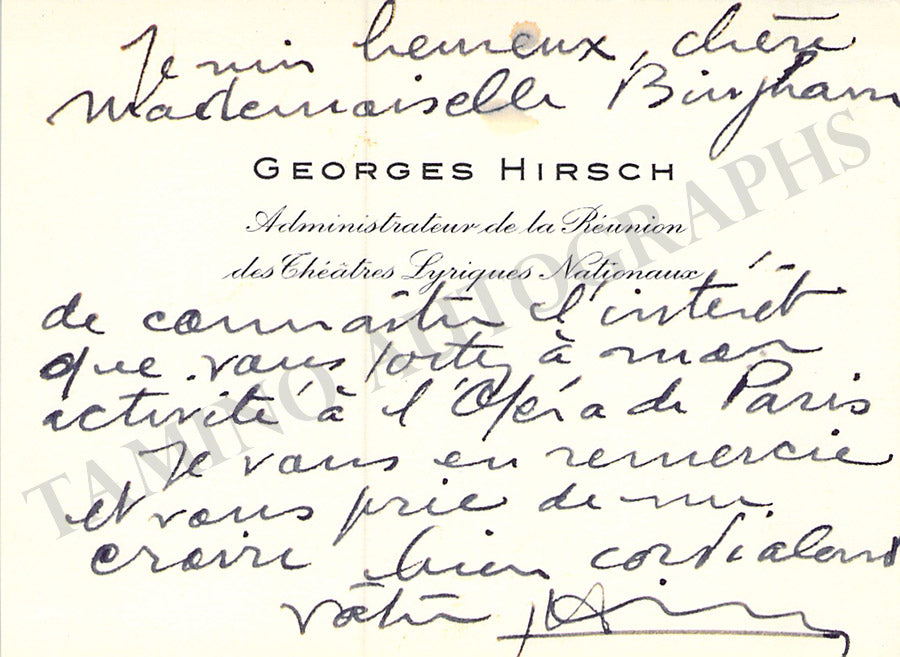 Je suis heureux, chère
Mademoiselle Bingham
GEORGES HIRSCH
Administrateur de la Réunion
des Théâtres Lyriques Nationaux
de connaître l'intérêt
que vous portez à mon
activité à l'Opéra de Paris
Je vous en remercie
et vous prie de me
croire bien cordialement
vôtre Hirsch
TAMINO AUTOGRAPHS